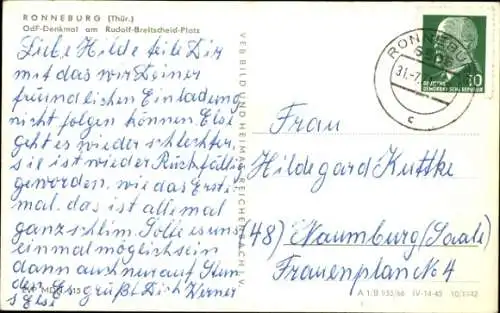 RONNEBURG (Thür.)
OdF-Denkmal am Rudolf-Breitscheid-Platz
Liebe Hilde teile Dir
mit das wir Deiner
freundlichen Einladung
nicht folgen können Else
geht es wieder schlechter,
sie ist wieder Rückfällig
geworden. wie das Erste
mal. das ist allemal
ganz schlim. Solle es uns
einmal möglich sein
dann auch nur auf Stun
den Es grüßt Dich Werner
s Else
VEB BILD UND HEIMAT REICHENBACH I. V.
RONNEBU
31.-7.
c
10
DEUTSCHE
DEMOKRATISCHE REPUBLIK
Frau
Hildegard Kuttke
(48) Naumburg (Saale)
Frauenplan No 4
A 1/B 935/66 IV-14-45 10/1942